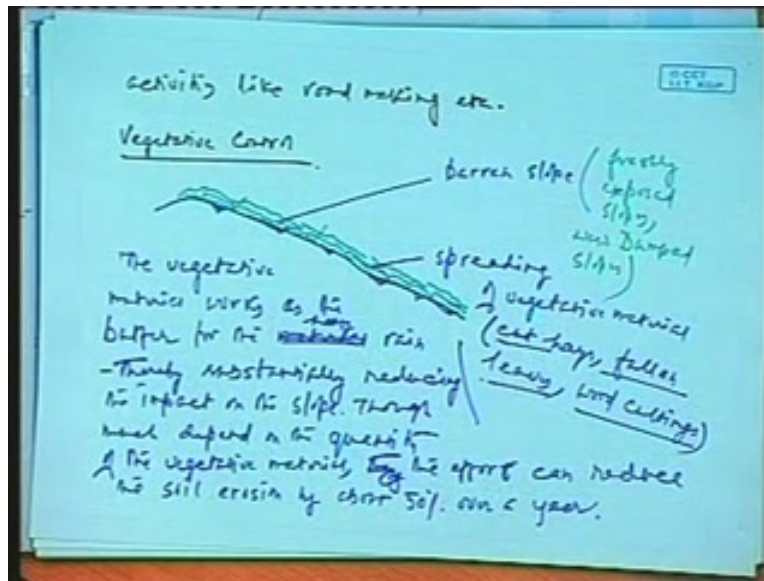 activity like road making etc.
© CET
I.I.T. KGP
Vegetative Control
barren slope (freshly
exposed
slopes,
waste Dumped
slopes)
spreading
of vegetative material
(cut hays, fallen
leaves, wood cuttings)
The vegetative
material works as the
buffer for the heavy rain
- Thereby substantially reducing
the impact on the slope. Though
much depend on the quantity
of the vegetative material, the effort can reduce
the soil erosion by about 50% over a year.